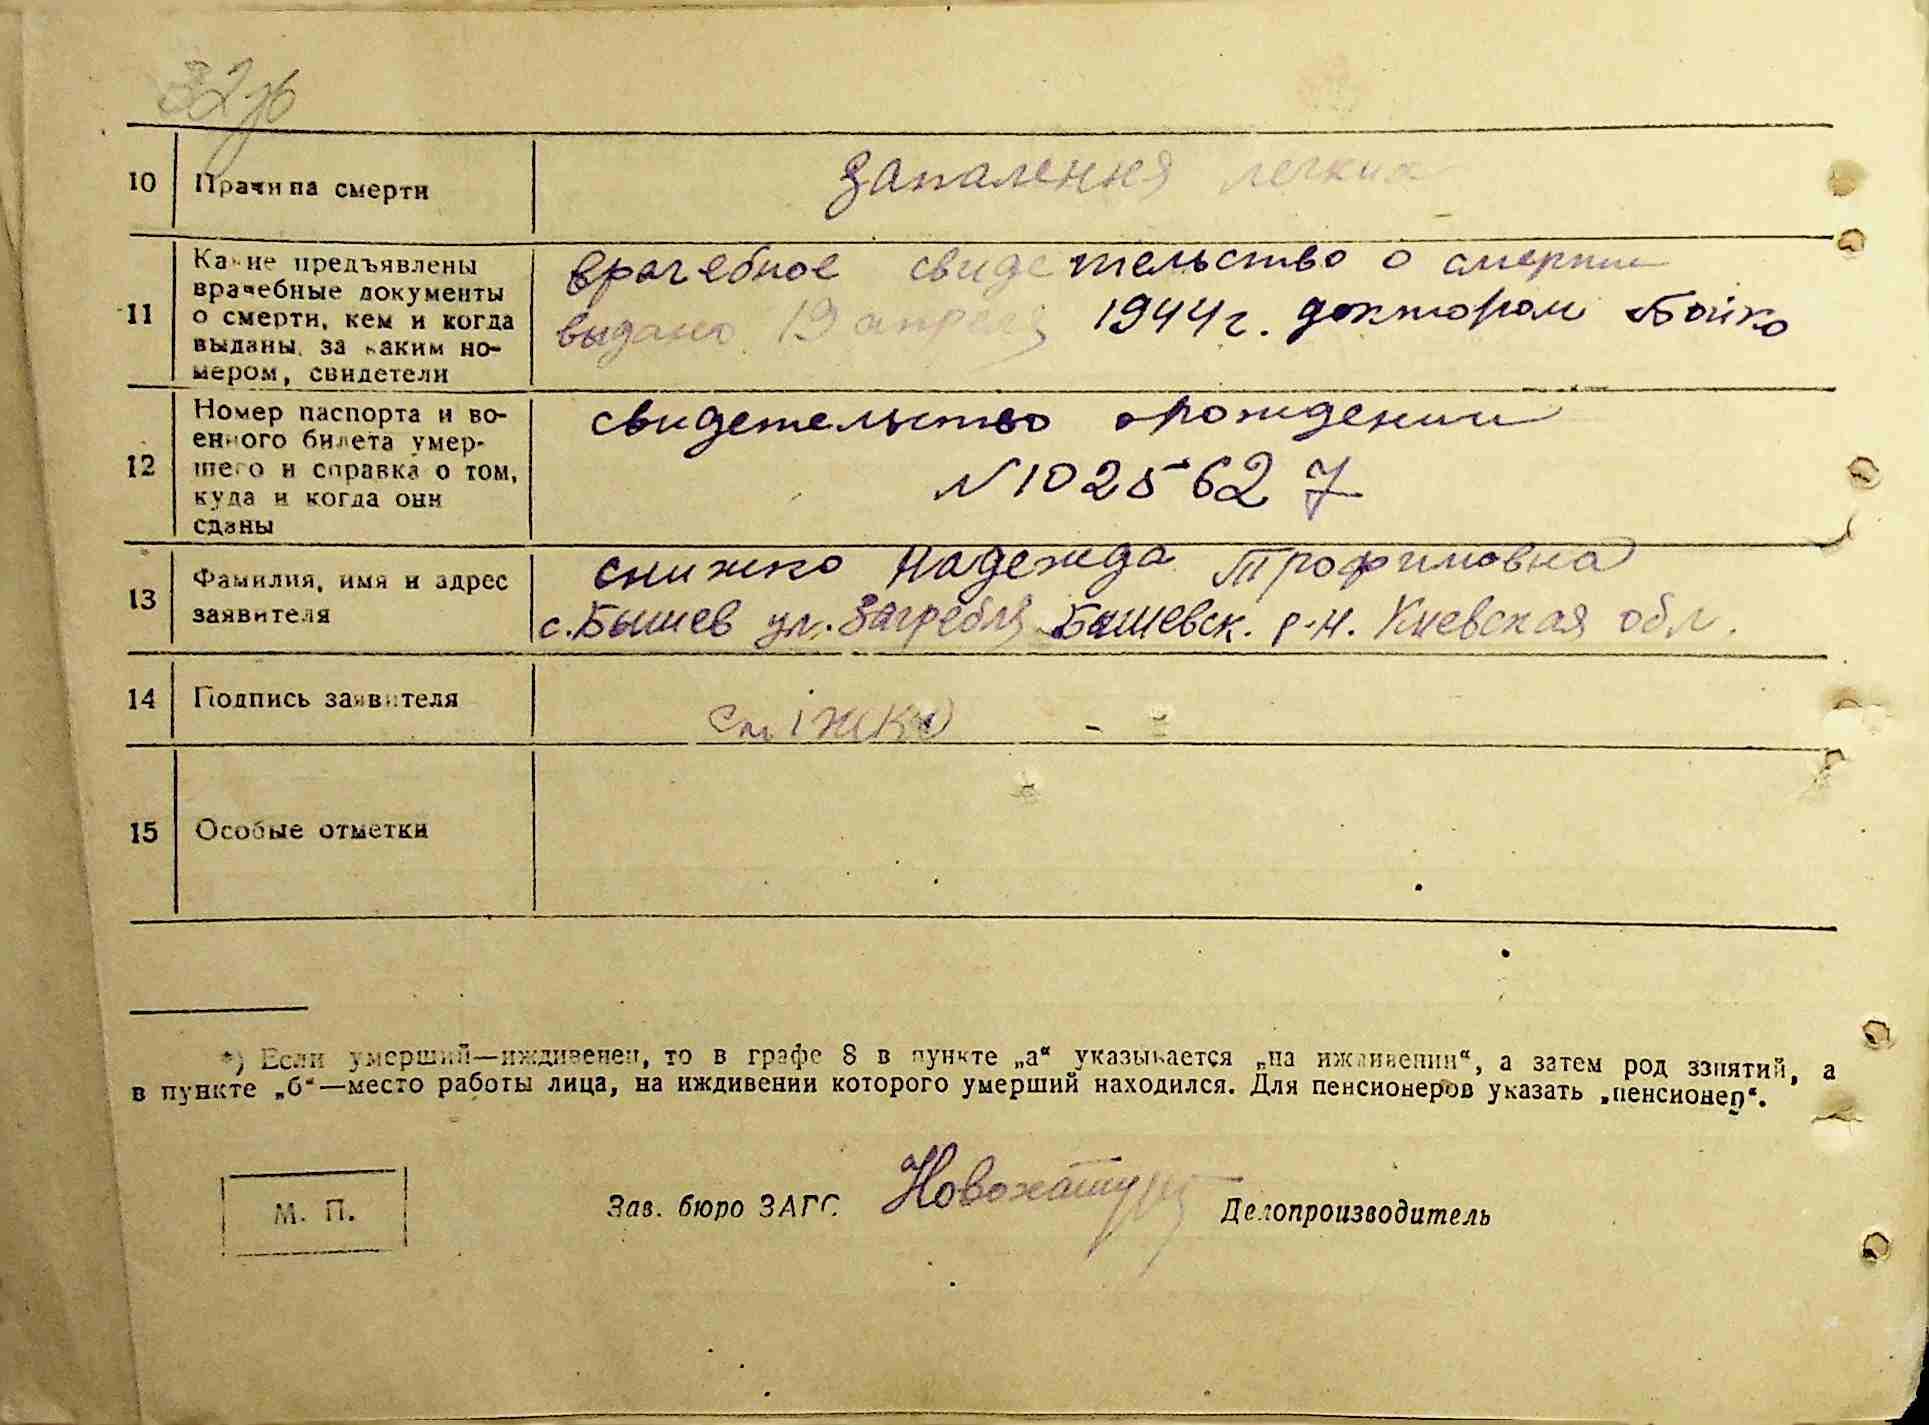 10 Причина смерти
запалення легких
11 Какие предъявлены
врачебные документы
о смерти, кем и когда
выданы, за каким но-
мером, свидетели
врачебное свидетельство о смерти
выдано 19 апреля 1944г. доктором Бойко
12 Номер паспорта и во-
енного билета умер-
шего и справка о том,
куда и когда они
сданы
свидетельство о рождении
N 1025627
13 Фамилия, имя и адрес
заявителя
Снижко Надежда Трофимовна
с. Бышев ул. Загребля Бышевск. р-н. Киевская обл.
14 Подпись заявителя
Сніжко
15 Особые отметки
*) Если умерший—иждивенец, то в графе 8 в пункте „а“ указывается „на иждивении“, а затем род занятий, а
в пункте „б“—место работы лица, на иждивении которого умерший находился. Для пенсионеров указать „пенсионер“.
М. П.
Зав. бюро ЗАГС
Делопроизводитель